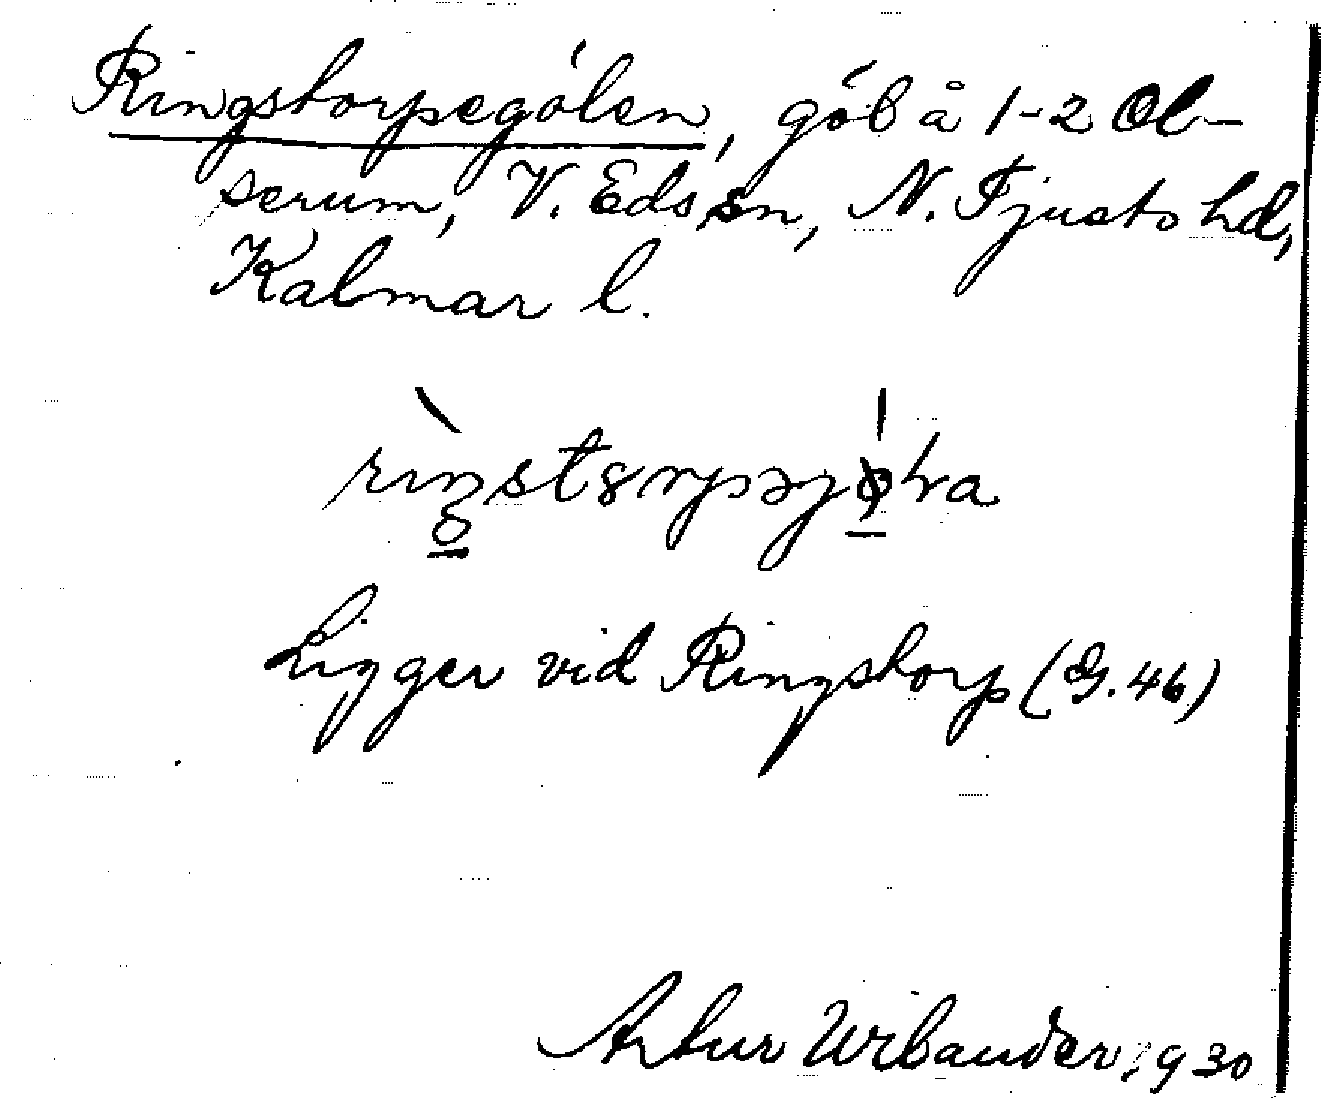 Ringstorpegölen, göl å 1-2 Ol-
serum, V. Eds sn, N. Tjusts hd,
Kalmar l.
Ligger vid Ringstorp (G. 46)
Artur Wilander, 1930